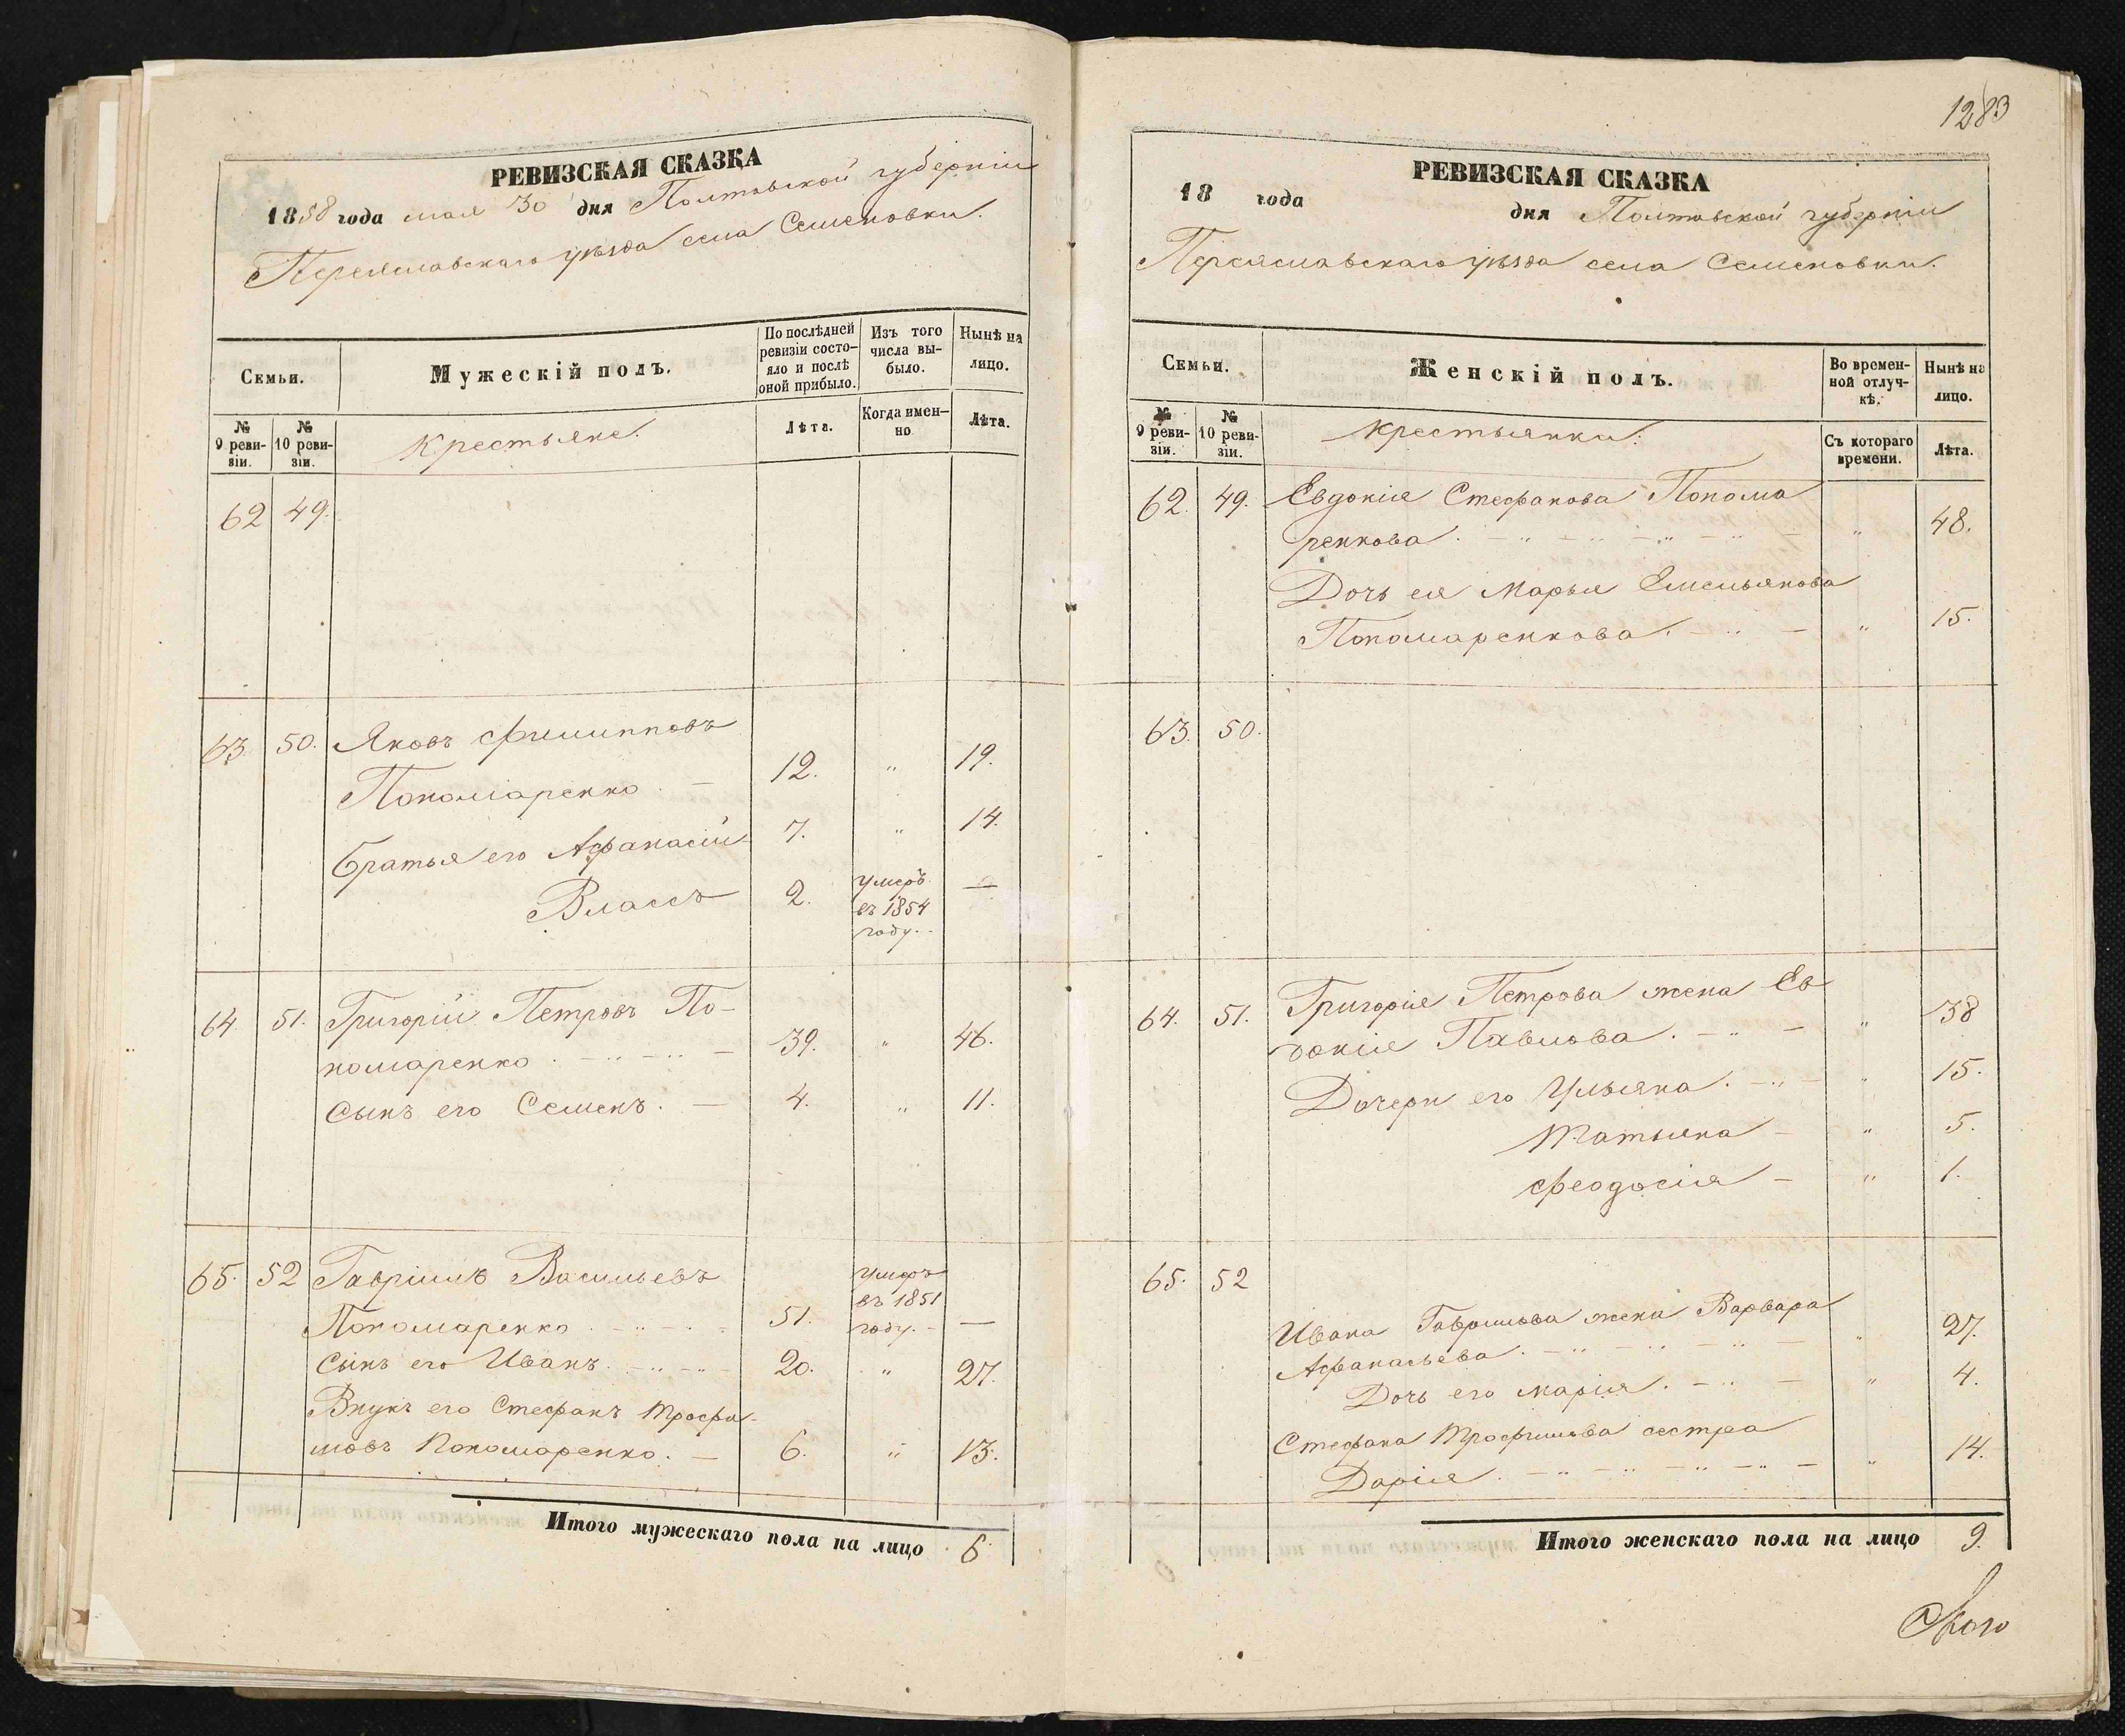 РЕВИЗСКАЯ СКАЗКА
1858 года мая 30 дня Полтавской губерніи
Переяславскаго уѣзда села Семеновки.
Семьи.
Мужескій полъ.
По послѣдней ревизіи состо-
яло и послѣ оной прибыло.
Изъ того числа вы-
было.
Нынѣ на лицо.
№ 9 реви-
зіи.
№ 10 реви-
зіи.
Крестьяне.
Лѣта.
Когда имен-
но
Лѣта.
62 49.
63. 50. Яковъ Филипповъ
Пономаренко . — 12. " 19.
Братья его Афанасій 7. " 14.
Власъ 2. умеръ въ 1854 году. —
64. 51. Григорій Петровъ По-
номаренко . — " — " — 39. " 46.
Сынъ его Семенъ. — 4. " 11.
65. 52 Гавріилъ Васильевъ
Пономаренко . — " — 51. умеръ въ 1851 году. — —
Сынъ его Иванъ. — " — " — 20. " 27.
Внукъ его Стефанъ Трофи-
мовъ Пономаренко. — 6. " 13.
Итого мужескаго пола на лицо 6.
1283
РЕВИЗСКАЯ СКАЗКА
18 года дня Полтавской губерніи
Переяславскаго уѣзда села Семеновки.
Семьи.
Женскій полъ.
Во времен-
ной отлуч-
кѣ.
Нынѣ на лицо.
№ 9 реви-
зіи.
№ 10 реви-
зіи.
Крестьянки.
Съ котораго времени.
Лѣта.
62. 49. Евдокія Стефанова Понома
ренкова . — " — " — " — " — " 48.
Дочь ея Марья Емельянова
Пономаренкова . — " — " 15.
63. 50.
64. 51. Григорія Петрова жена Ев
докія Павлова . — " — " 38
Дочери его Ульяна . — " — " 15.
Татьяна — " 5.
Феодосія — " 1.
65. 52
Ивана Гаврилова жена Варвара
Афанасьева . — " — " — " — " 27.
Дочь его Марія . — " — " 4.
Стефана Трофимова сестра
Дарія . — " — " — " — " — " 14.
Итого женскаго пола на лицо 9.